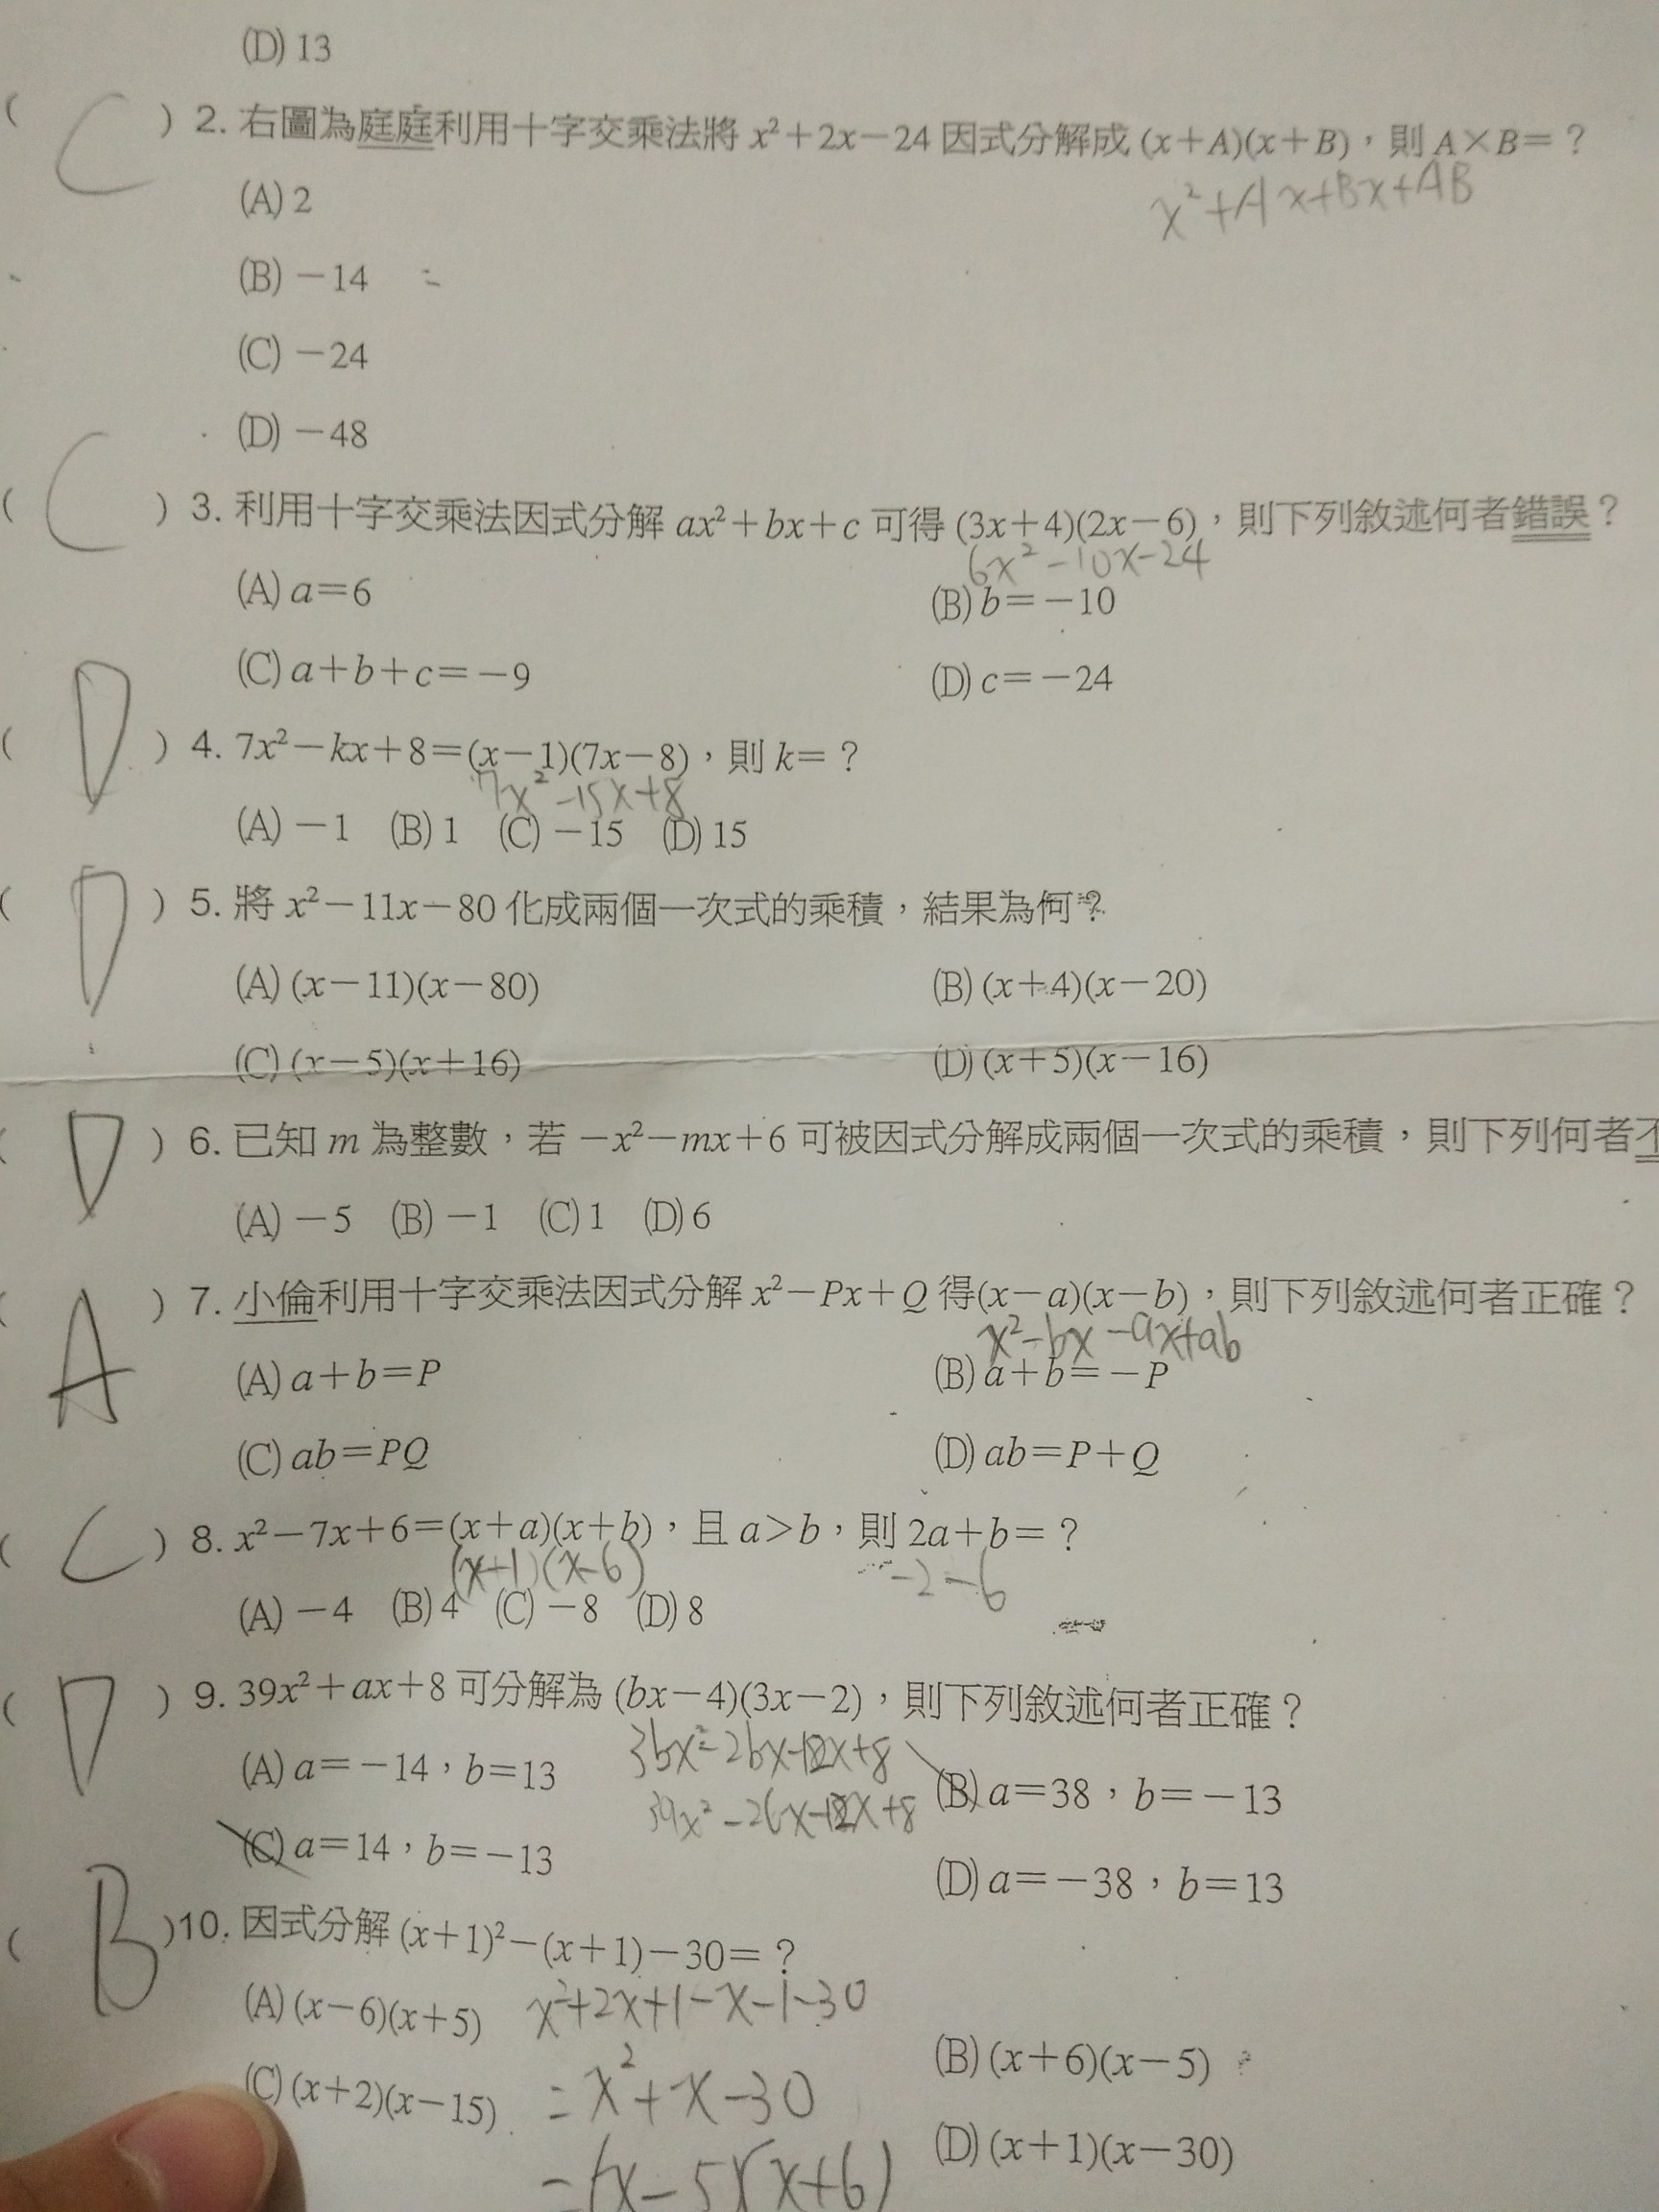 (D) 13
( C ) 2. 右圖為庭庭利用十字交乘法將 x²+2x−24 因式分解成 (x+A)(x+B)，則 A×B=？
x²+Ax+Bx+AB
(A) 2
(B) −14
(C) −24
(D) −48
( C ) 3. 利用十字交乘法因式分解 ax²+bx+c 可得 (3x+4)(2x−6)，則下列敘述何者錯誤？
6x²−10x−24
(A) a=6 (B) b=−10
(C) a+b+c=−9 (D) c=−24
( D ) 4. 7x²−kx+8=(x−1)(7x−8)，則 k=？
7x²−15x+8
(A) −1 (B) 1 (C) −15 (D) 15
( D ) 5. 將 x²−11x−80 化成兩個一次式的乘積，結果為何？
(A) (x−11)(x−80) (B) (x+4)(x−20)
(C) (x−5)(x+16) (D) (x+5)(x−16)
( D ) 6. 已知 m 為整數，若 −x²−mx+6 可被因式分解成兩個一次式的乘積，則下列何者不
(A) −5 (B) −1 (C) 1 (D) 6
( A ) 7. 小倫利用十字交乘法因式分解 x²−Px+Q 得(x−a)(x−b)，則下列敘述何者正確？
x²−bx−ax+ab
(A) a+b=P (B) a+b=−P
(C) ab=PQ (D) ab=P+Q
( C ) 8. x²−7x+6=(x+a)(x+b)，且 a>b，則 2a+b=？
(x+1)(x−6) −2−6
(A) −4 (B) 4 (C) −8 (D) 8
( D ) 9. 39x²+ax+8 可分解為 (bx−4)(3x−2)，則下列敘述何者正確？
3bx²−2bx−12x+8
(A) a=−14，b=13 (B) a=38，b=−13
39x²−26x−12x+8
(C) a=14，b=−13 (D) a=−38，b=13
( B )10. 因式分解 (x+1)²−(x+1)−30=？
(A) (x−6)(x+5) (B) (x+6)(x−5)
x²+2x+1−x−1−30
(C) (x+2)(x−15) (D) (x+1)(x−30)
=x²+x−30
=(x−5)(x+6)